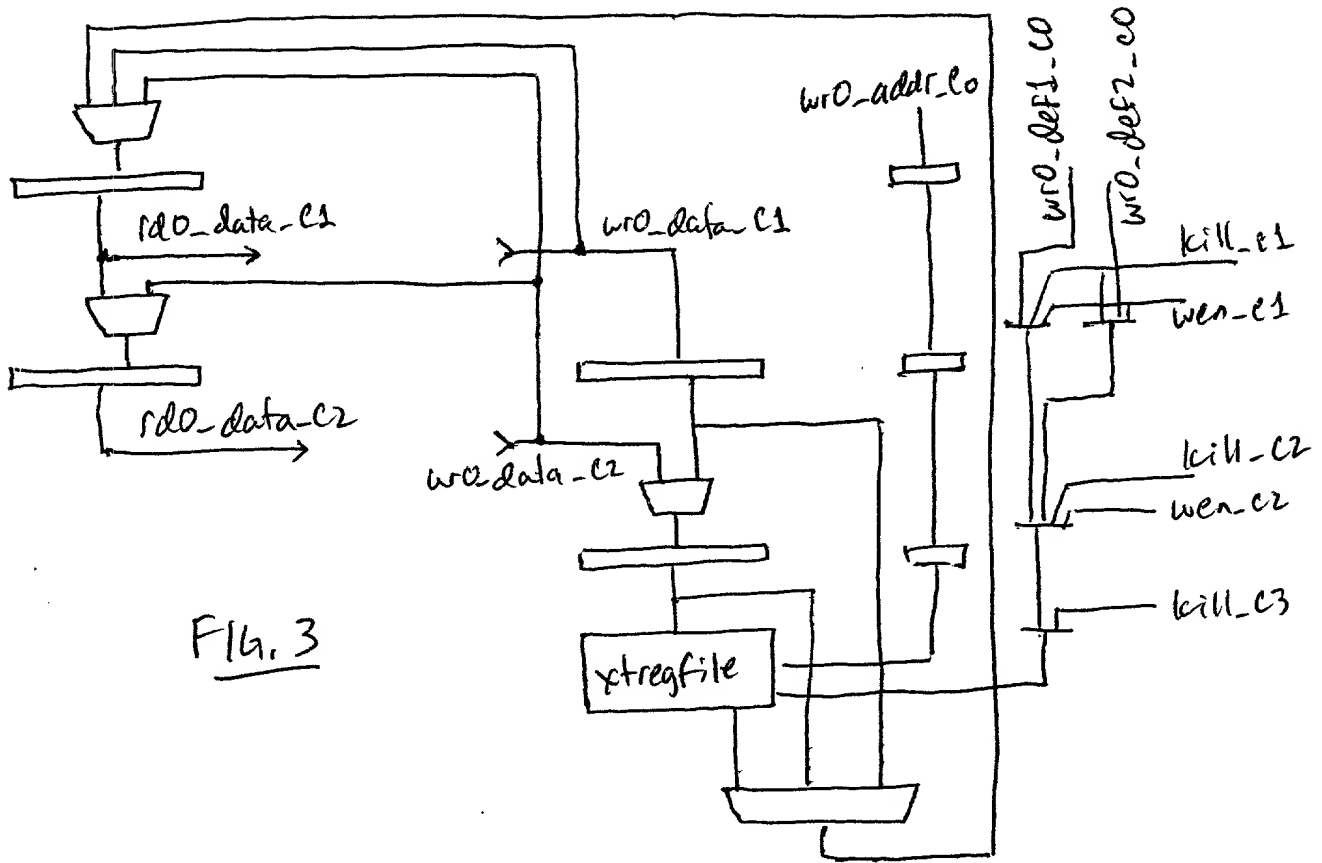 wr0_def1_c0
wr0_def2_c0
wr0_addr_c0
rd0_data_c1
wr0_data_c1
kill_c1
wen_c1
rd0_data_c2
wr0_data_c2
kill_c2
wen_c2
kill_c3
FIG. 3
xtregfile